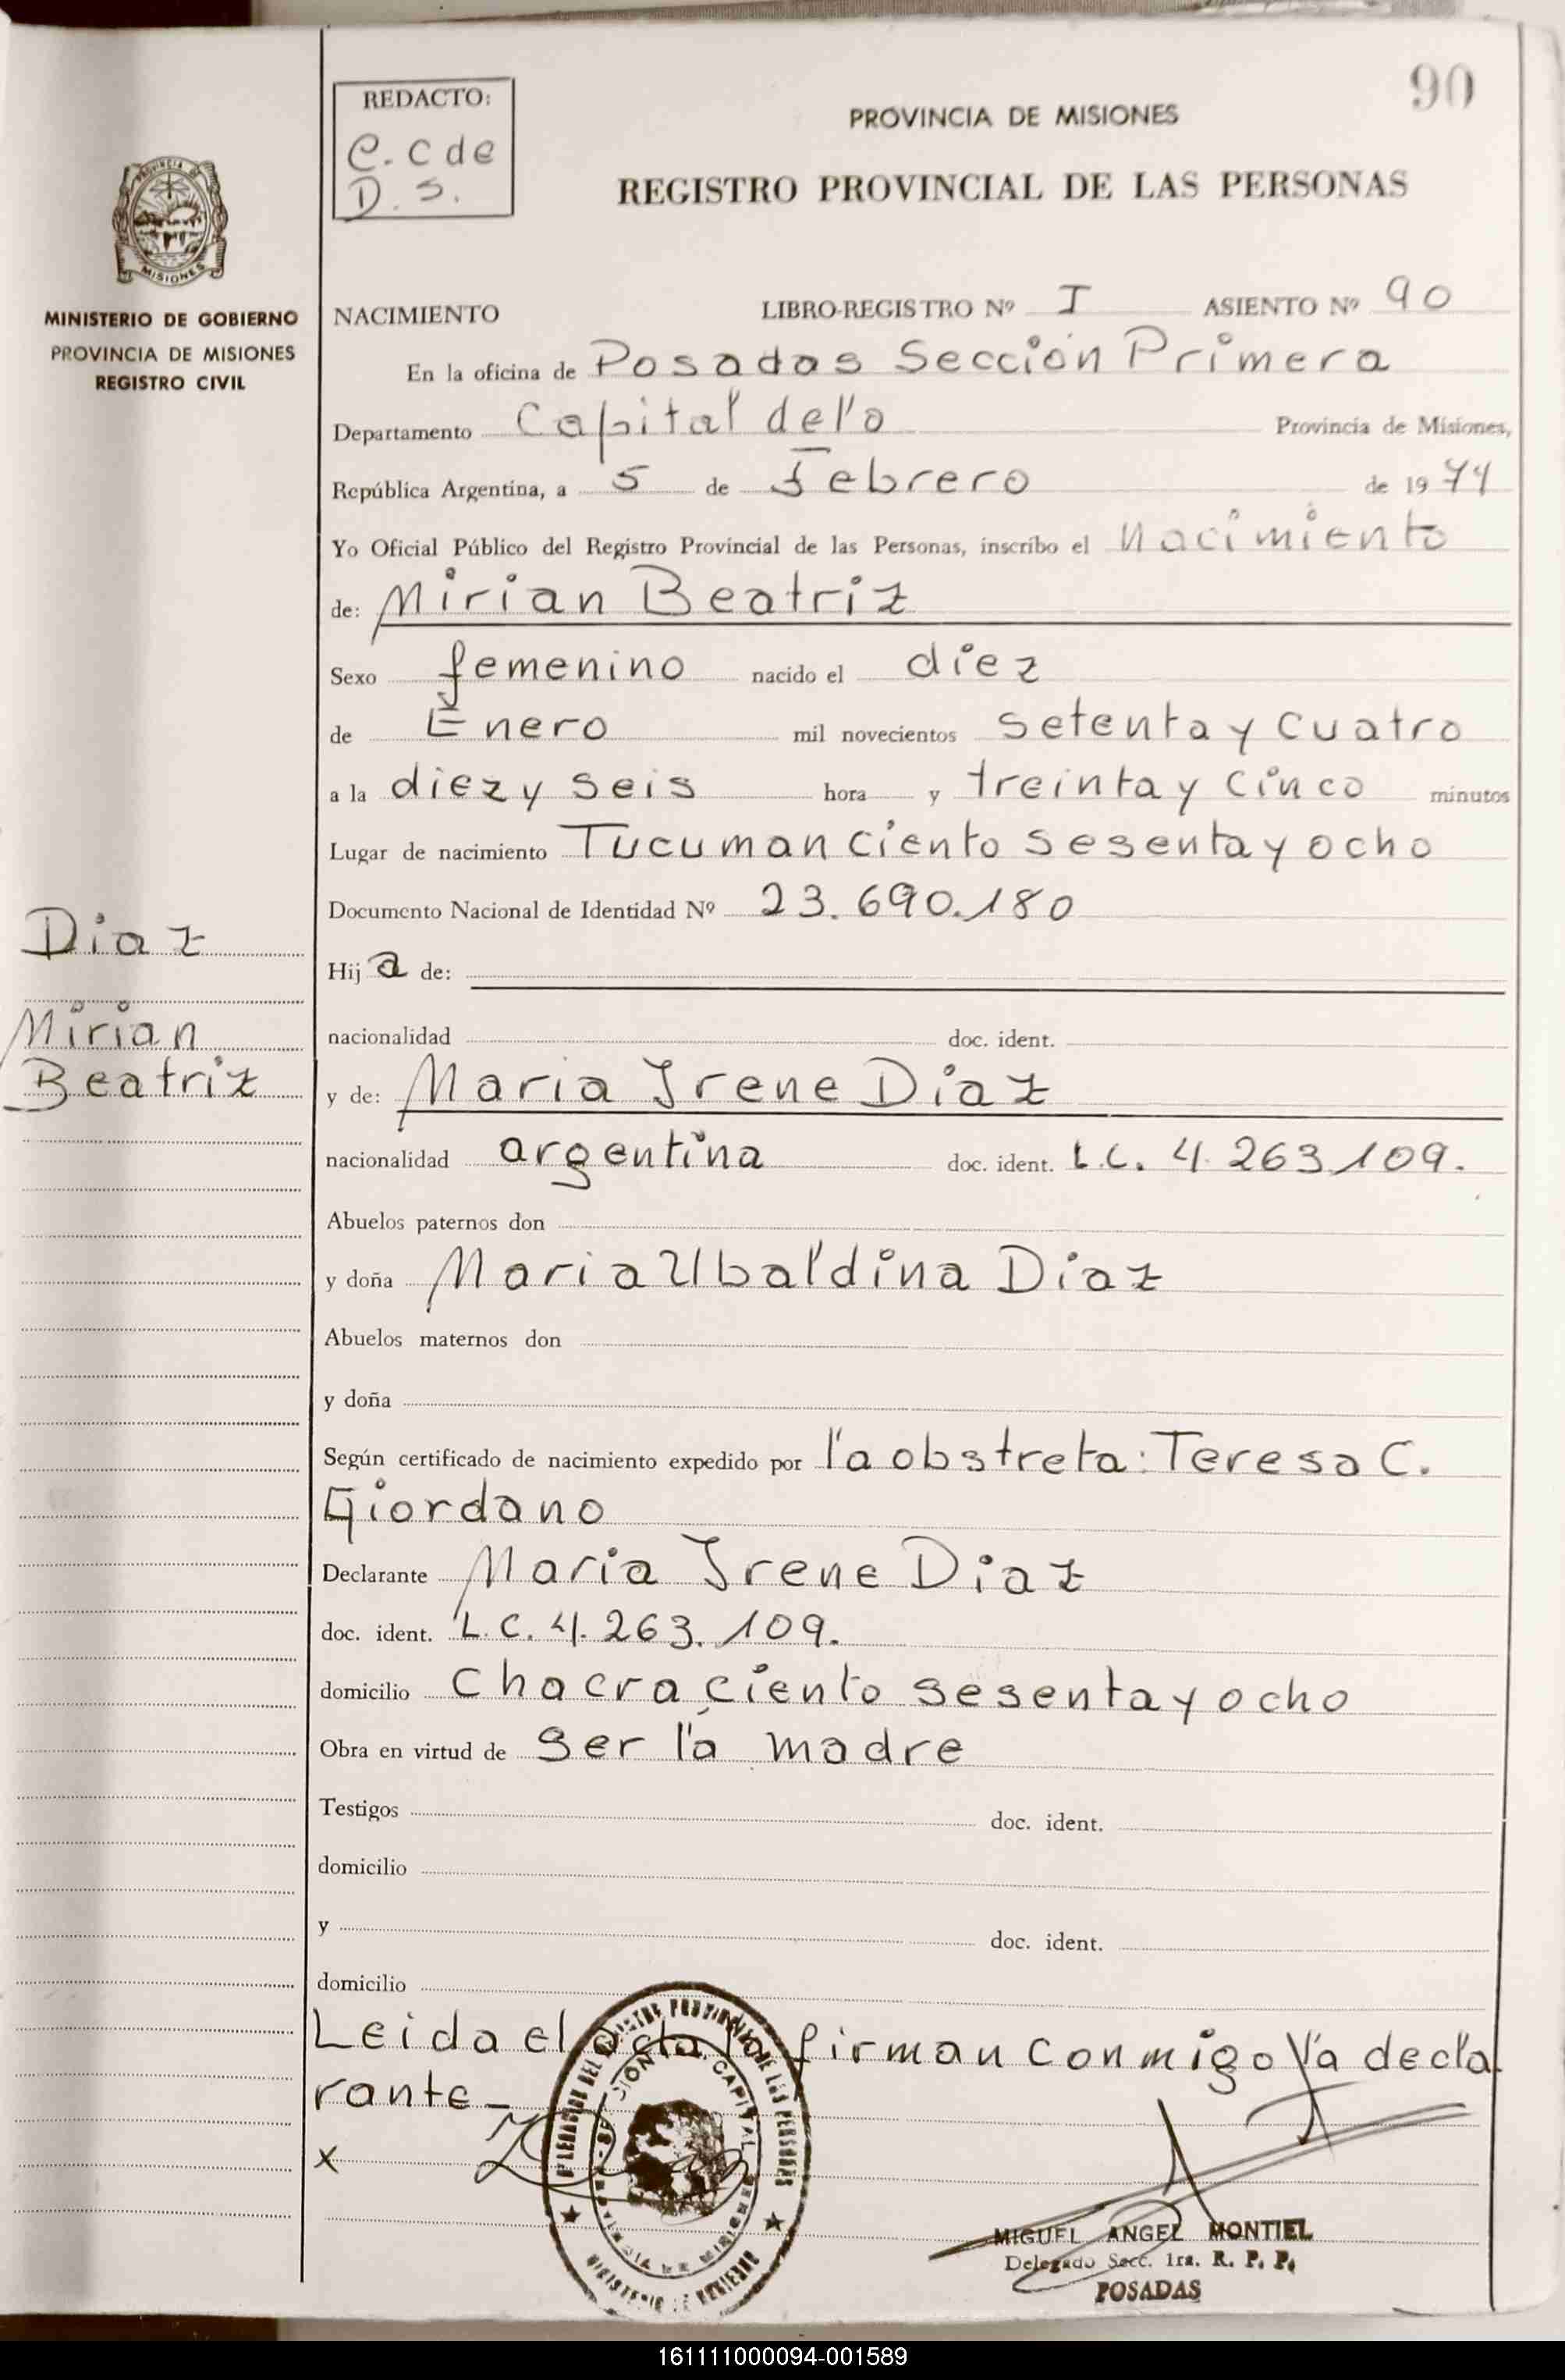 90
REDACTO:
C. C de
D. S.
PROVINCIA DE MISIONES
REGISTRO PROVINCIAL DE LAS PERSONAS
PROVINCIA DE
MISIONES
MINISTERIO DE GOBIERNO
PROVINCIA DE MISIONES
REGISTRO CIVIL
NACIMIENTO LIBRO-REGISTRO Nº I ASIENTO Nº 90
En la oficina de Posadas Sección Primera
Departamento Capital dello Provincia de Misiones,
República Argentina, a 5 de Febrero de 1974
Yo Oficial Público del Registro Provincial de las Personas, inscribo el Nacimiento
de: Mirian Beatriz
Sexo femenino nacido el diez
de Enero mil novecientos setenta y cuatro
a la diez y seis hora y treinta y cinco minutos
Lugar de nacimiento Tucuman ciento sesenta y ocho
Documento Nacional de Identidad Nº 23.690.180
Diaz
Mirian
Beatriz
Hija de:
nacionalidad doc. ident.
y de: Maria Irene Diaz
nacionalidad argentina doc. ident. L.C. 4.263.109.
Abuelos paternos don
y doña Maria Ubaldina Diaz
Abuelos maternos don
y doña
Según certificado de nacimiento expedido por la obstreta: Teresa C.
Giordano
Declarante Maria Irene Diaz
doc. ident. L.C. 4.263.109.
domicilio Chacra ciento sesenta y ocho
Obra en virtud de ser la madre
Testigos doc. ident.
domicilio
y doc. ident.
domicilio
Leida el acta la firman conmigo la decla
rante_
x
MIGUEL ANGEL MONTIEL
Delegado Secc. 1ra. R. P. P.
POSADAS
161111000094-001589